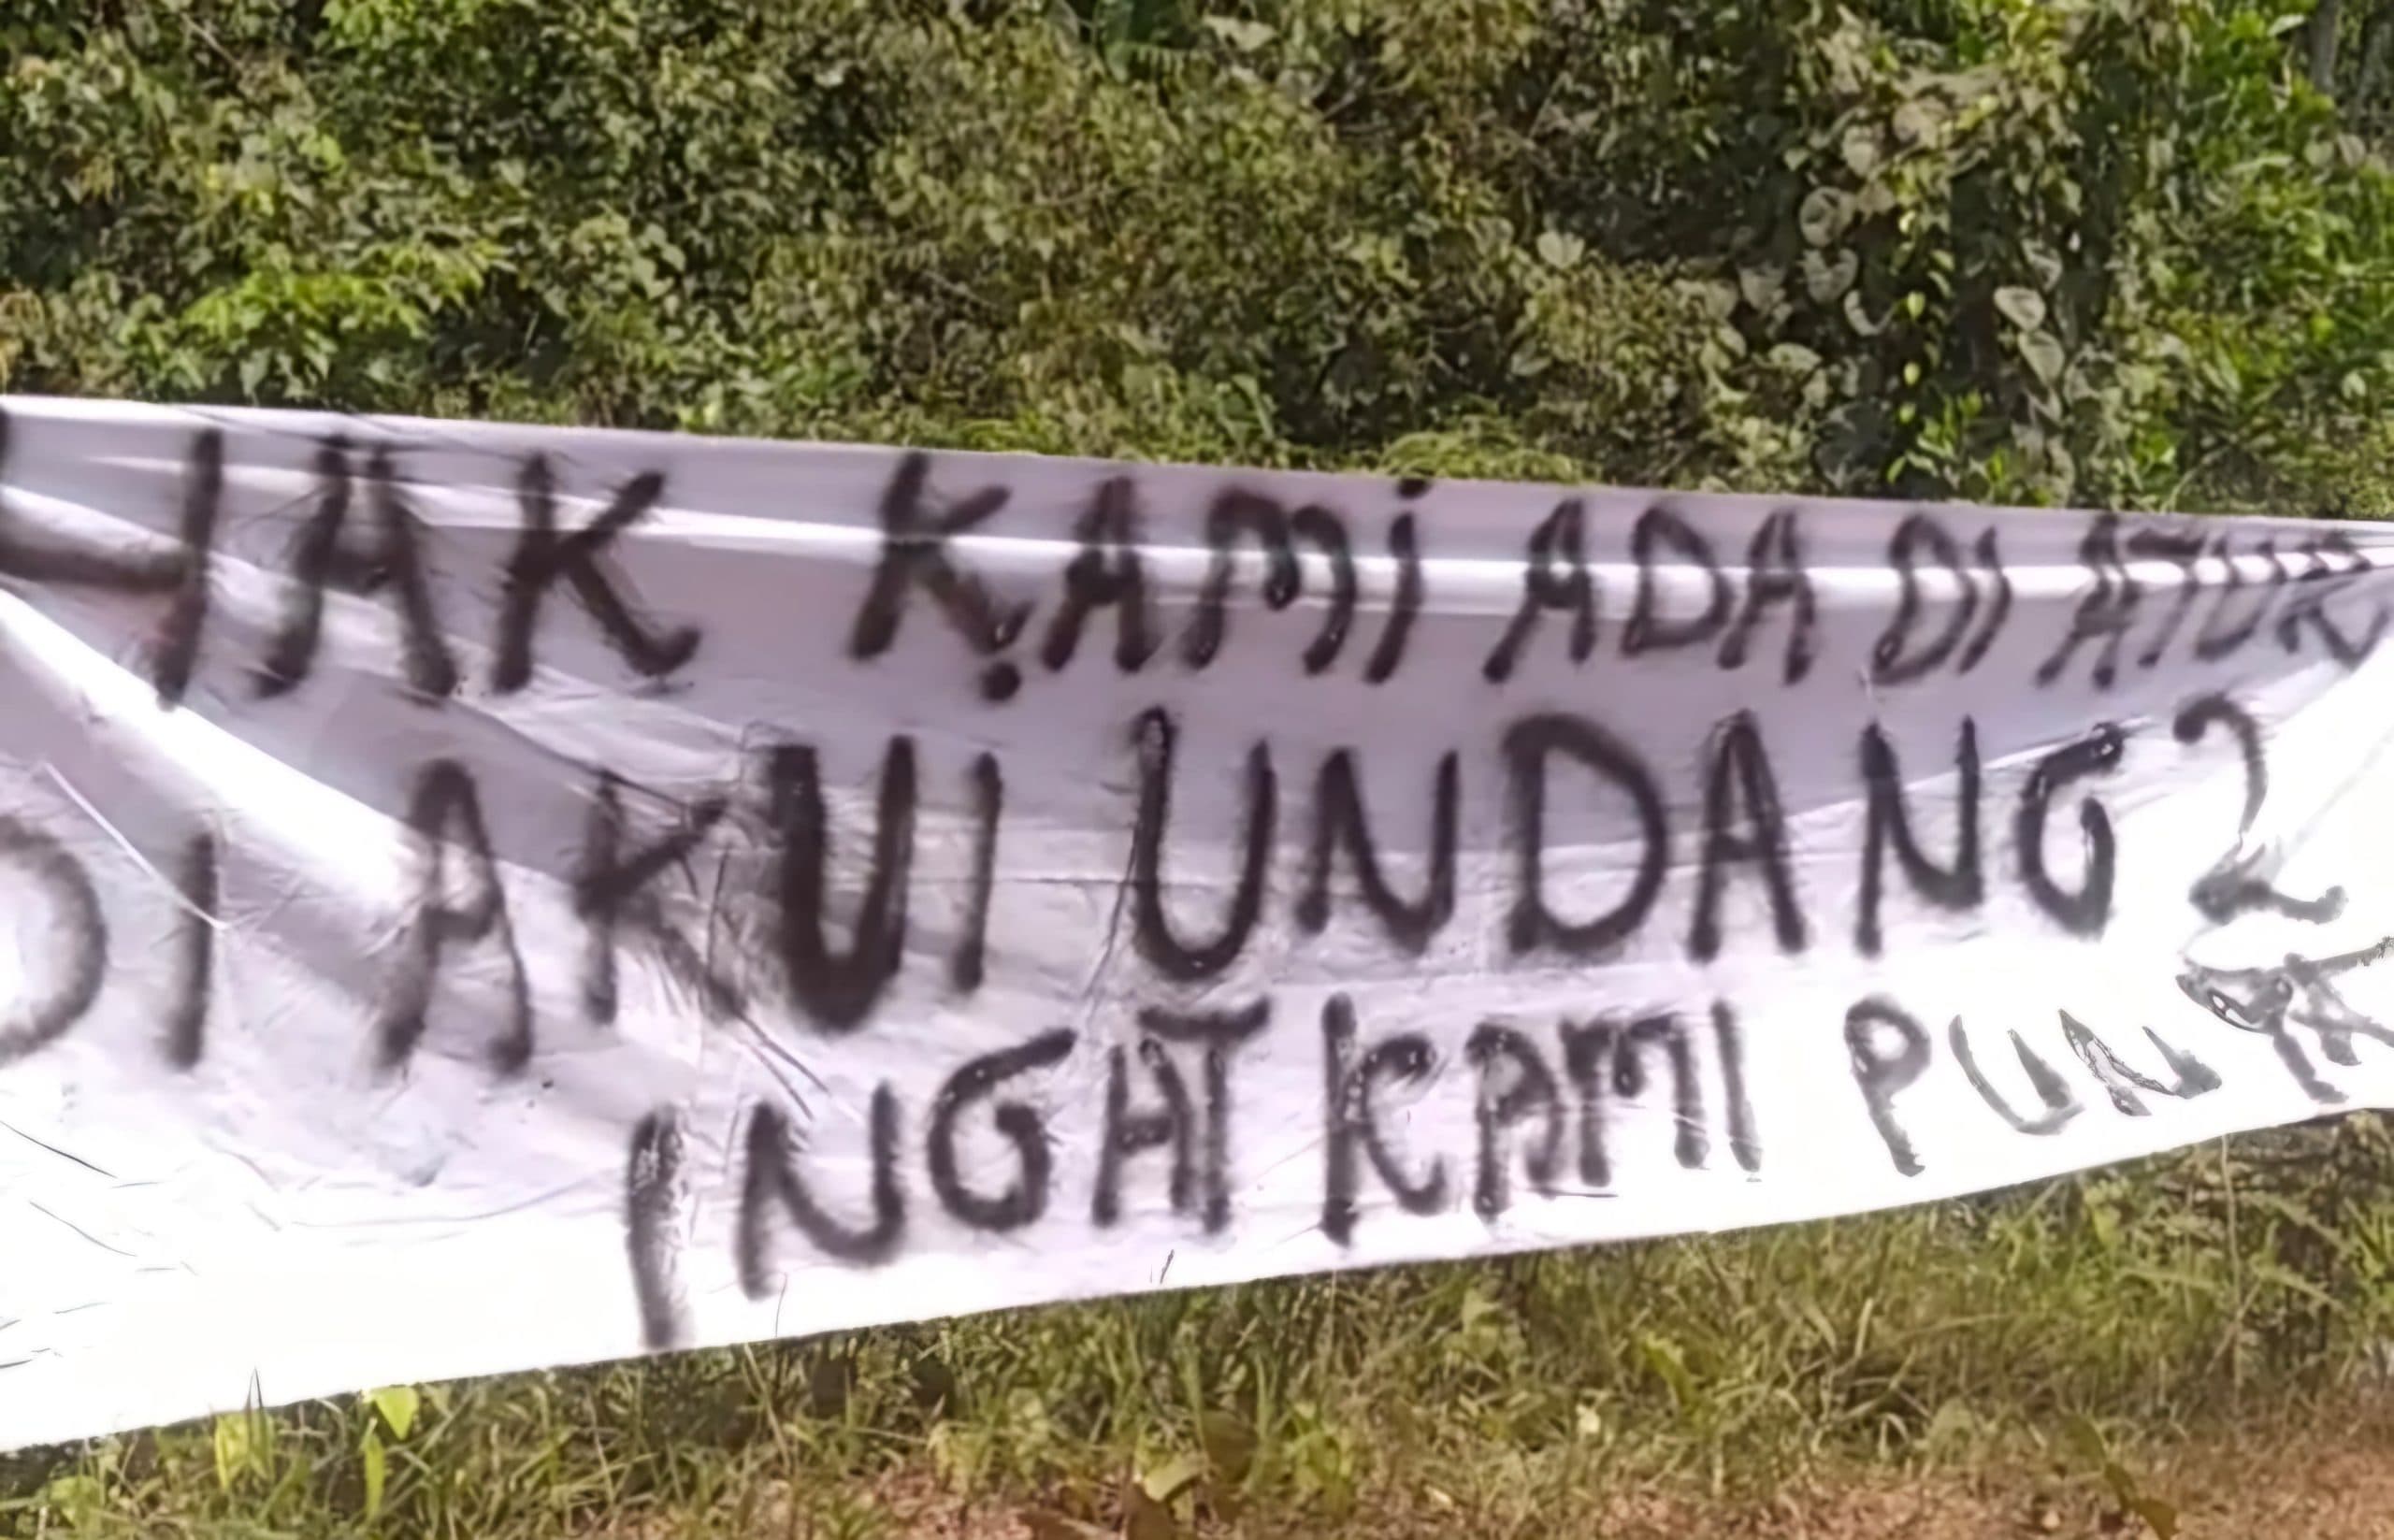 KAMI ADA DI ATUR
DI AKUI UNDANG2
INGAT KAMI PUNYA